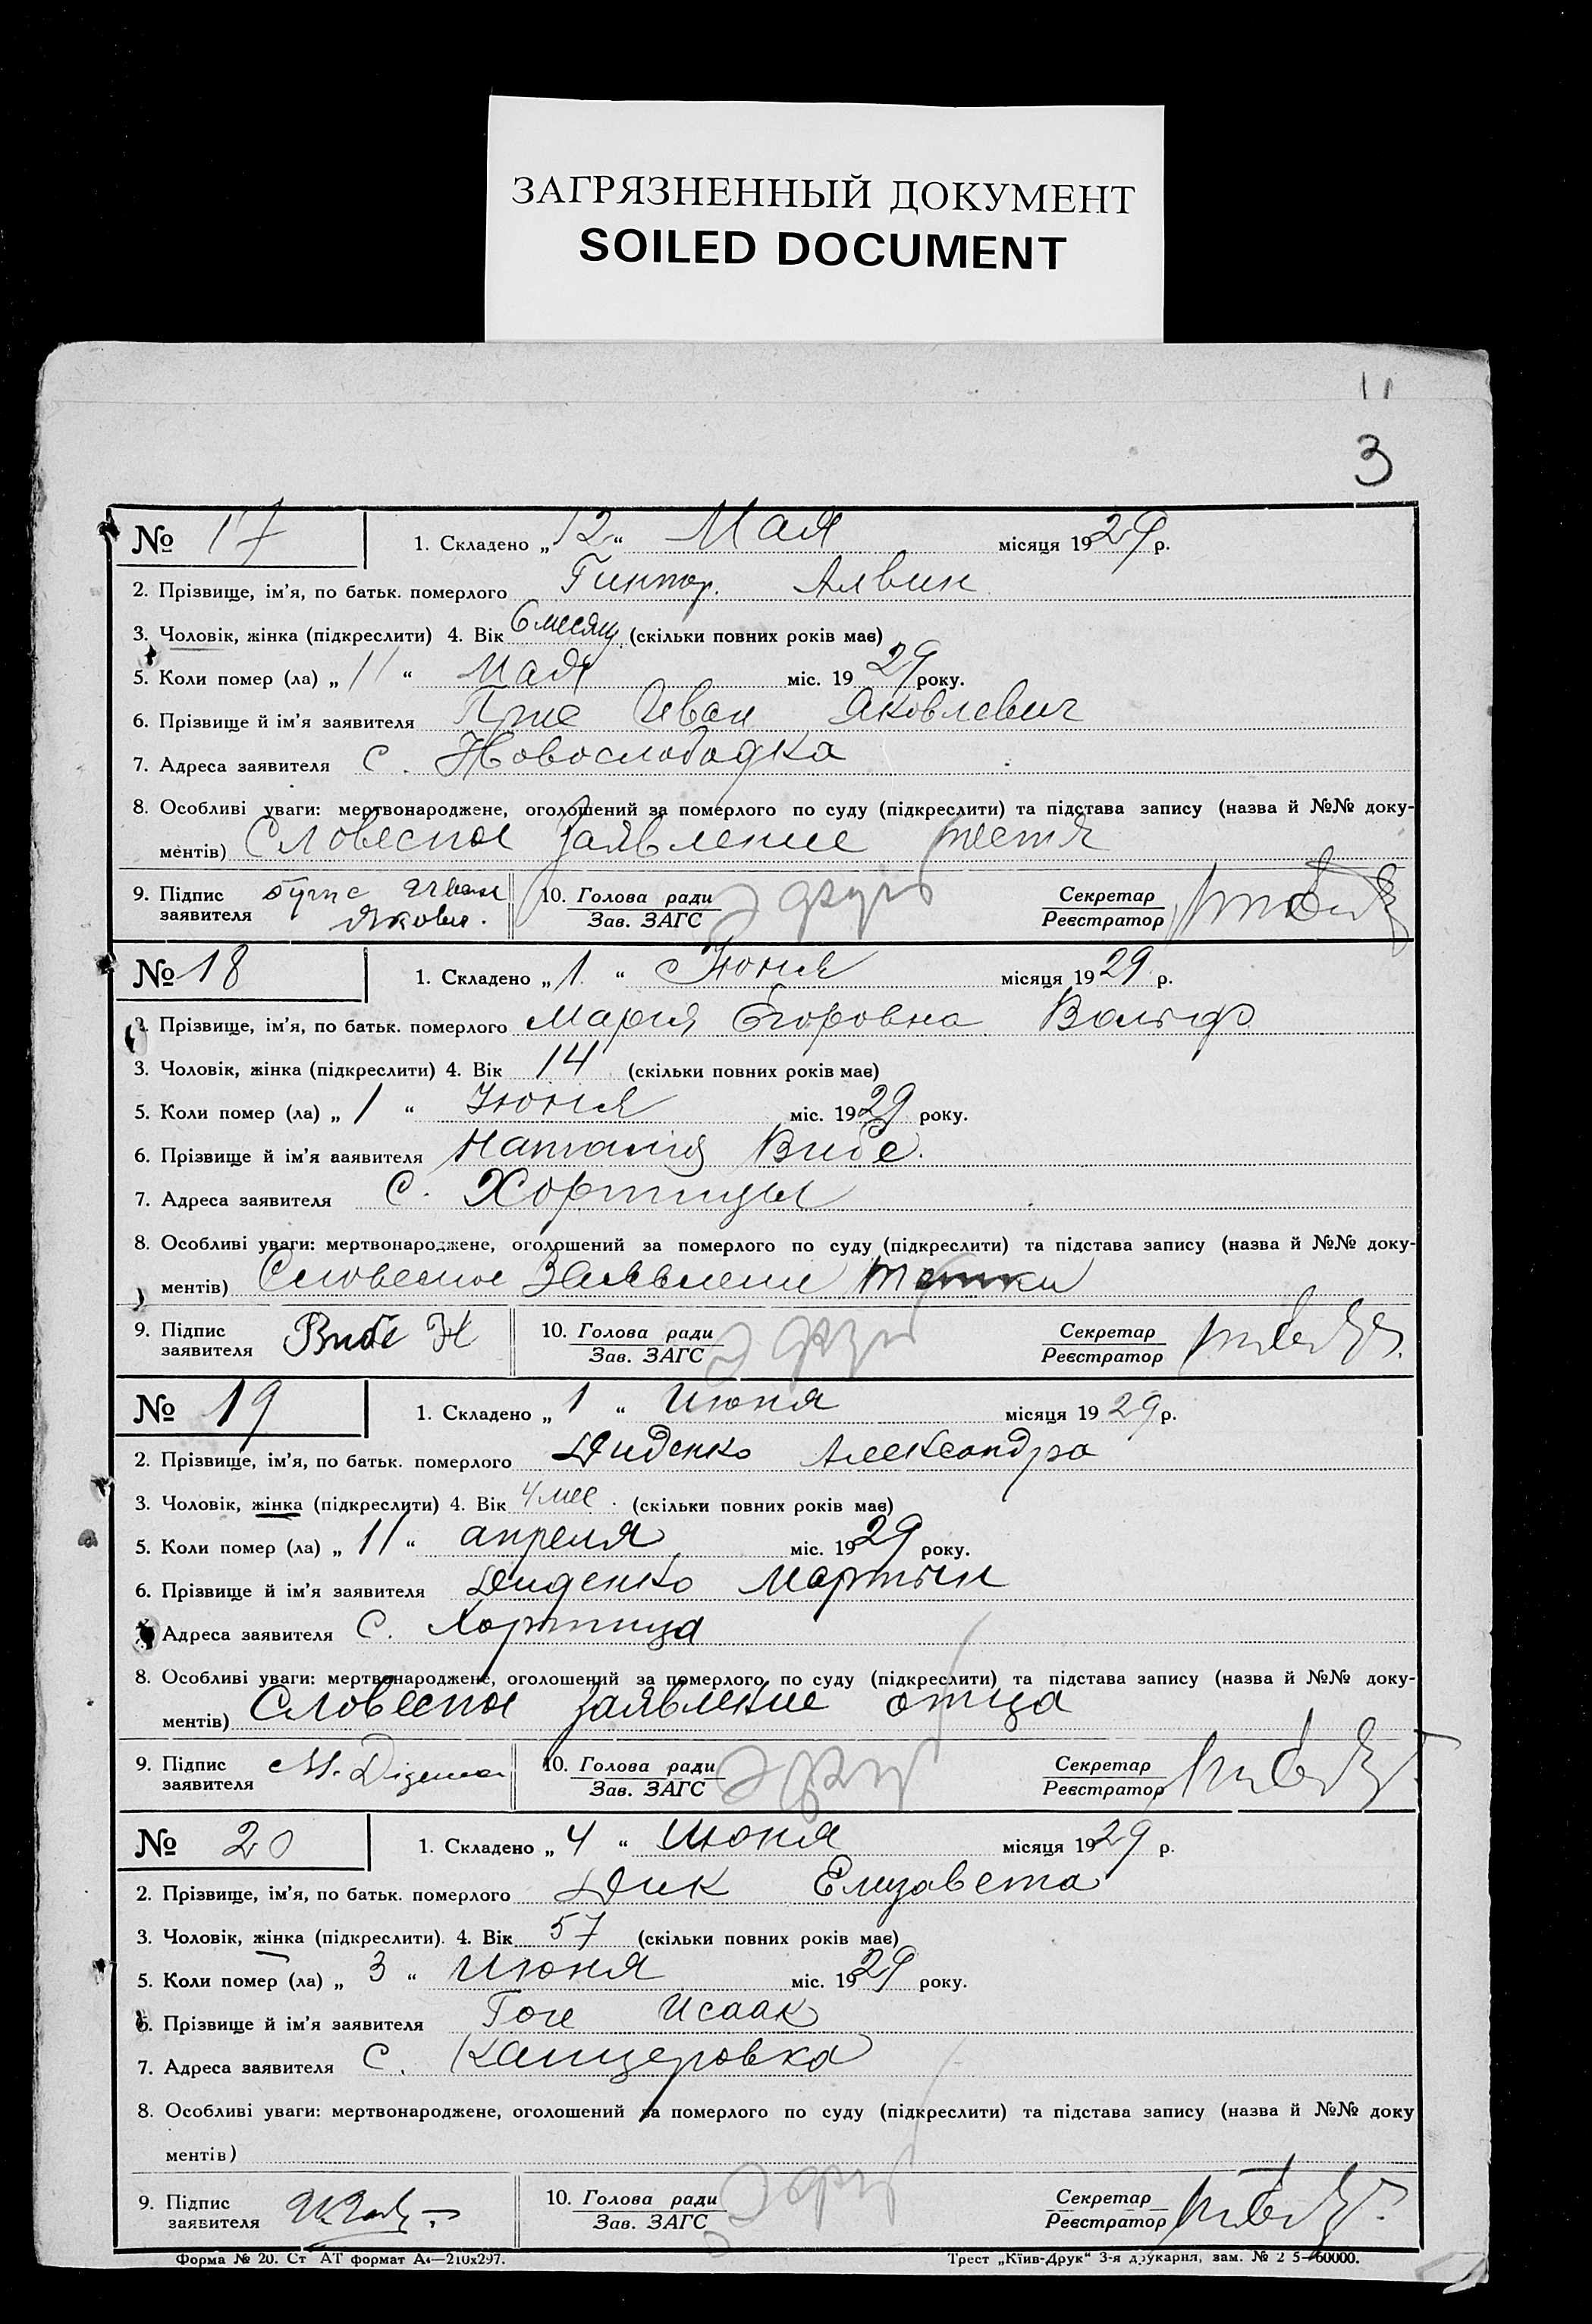 ЗАГРЯЗНЕННЫЙ ДОКУМЕНТ
SOILED DOCUMENT
11
3
№ 17 1. Складено „12“ Мая місяця 1929 р.
2. Прізвище, ім'я, по батьк. померлого Гинтер. Алвин
3. Чоловік, жінка (підкреслити) 4. Вік 6 месяц. (скільки повних років має)
5. Коли помер (ла) „11“ Мая міс. 1929 року.
6. Прізвище й ім'я заявителя Иван Яковлевич
7. Адреса заявителя С. Новослободка
8. Особливі уваги: мертвонароджене, оголошений за померлого по суду (підкреслити) та підстава запису (назва й №№ доку-
ментів) Словесное заявление тестя
9. Підпис заявителя Иван Яковл. 10. Голова ради Зав. ЗАГС Секретар Реєстратор
№ 18 1. Складено „1“ Июня місяця 1929 р.
2. Прізвище, ім'я, по батьк. померлого Мария Егоровна Вольф
3. Чоловік, жінка (підкреслити) 4. Вік 14 (скільки повних років має)
5. Коли помер (ла) „1“ Июня міс. 1929 року.
6. Прізвище й ім'я заявителя Наталия Вибе.
7. Адреса заявителя С. Хортицы
8. Особливі уваги: мертвонароджене, оголошений за померлого по суду (підкреслити) та підстава запису (назва й №№ доку-
ментів) Словесное Заявление тетки
9. Підпис заявителя Вибе Н 10. Голова ради Зав. ЗАГС Секретар Реєстратор
№ 19 1. Складено „1“ Июня місяця 1929 р.
2. Прізвище, ім'я, по батьк. померлого Диденко Александра
3. Чоловік, жінка (підкреслити) 4. Вік 4 мес. (скільки повних років має)
5. Коли помер (ла) „11“ апреля міс. 1929 року.
6. Прізвище й ім'я заявителя Диденко Мартын
Адреса заявителя С. Хортица
8. Особливі уваги: мертвонароджене, оголошений за померлого по суду (підкреслити) та підстава запису (назва й №№ доку-
ментів) Словесное заявление отца
9. Підпис заявителя М. 10. Голова ради Зав. ЗАГС Секретар Реєстратор
№ 20 1. Складено „4“ Июня місяця 1929 р.
2. Прізвище, ім'я, по батьк. померлого Дик Елизавета
3. Чоловік, жінка (підкреслити). 4. Вік 57 (скільки повних років має)
5. Коли помер (ла) „3“ Июня міс. 1929 року.
6. Прізвище й ім'я заявителя Исаак
7. Адреса заявителя С. Канцеровка
8. Особливі уваги: мертвонароджене, оголошений за померлого по суду (підкреслити) та підстава запису (назва й №№ доку
ментів)
9. Підпис заявителя 10. Голова ради Зав. ЗАГС Секретар Реєстратор
Форма № 20. Ст АТ формат А4—210х297. Трест „Київ-Друк“ 3-я друкарня, зам. № 2 5—60000.